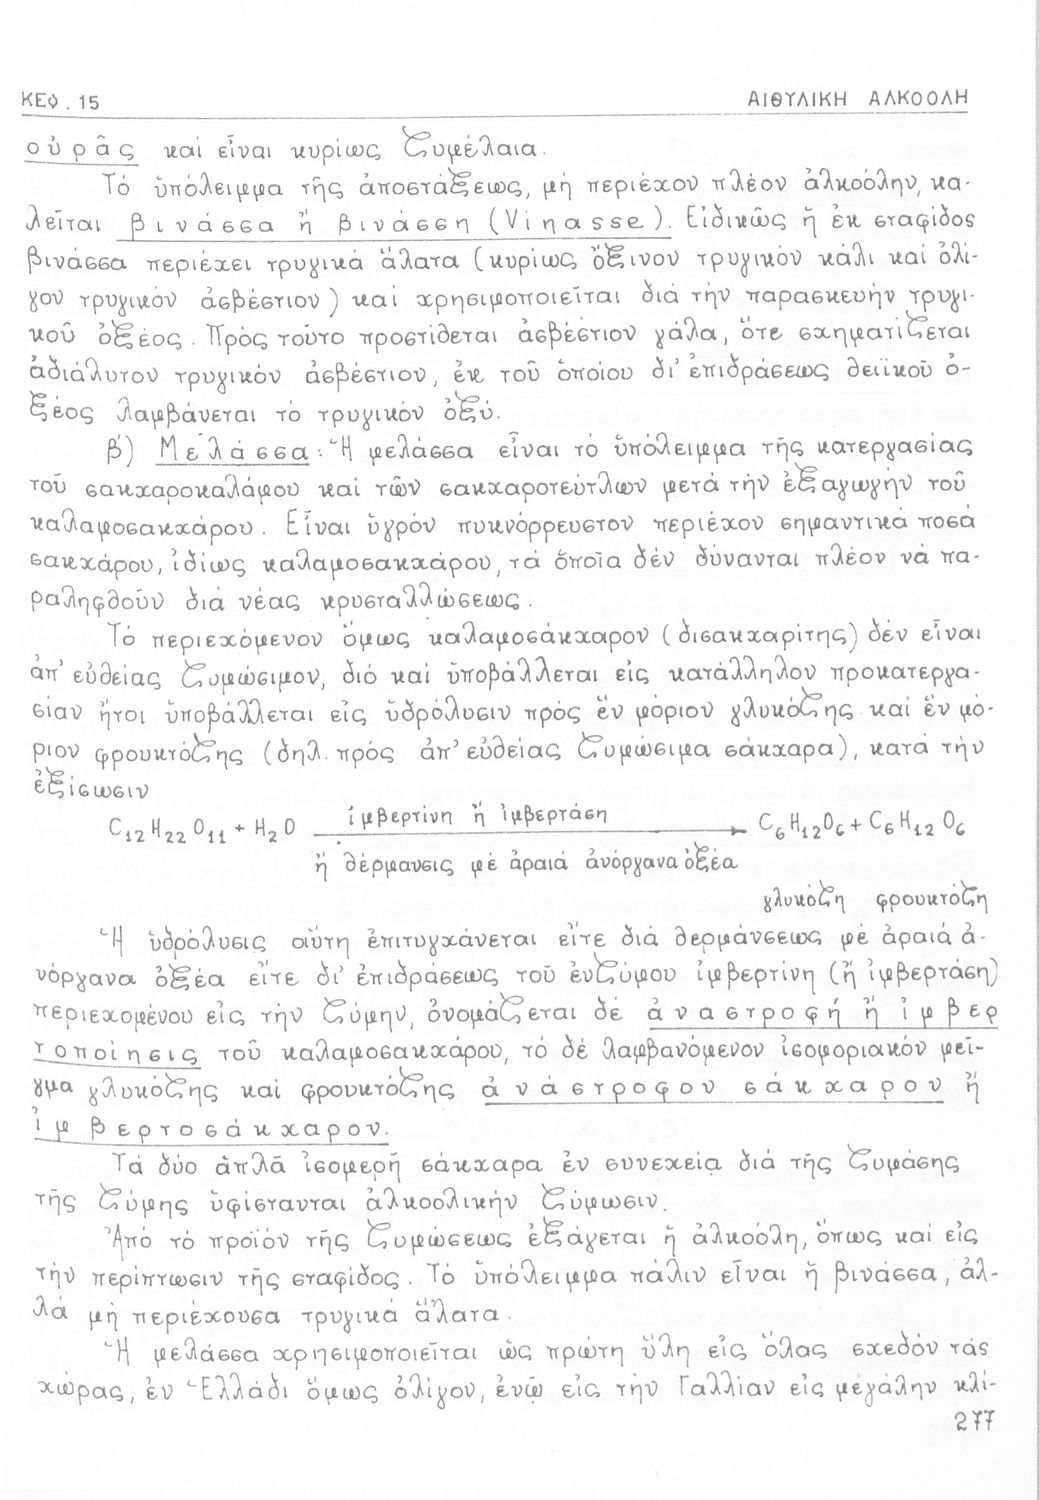 ΚΕΦ. 15 ΑΙΘΥΛΙΚΗ ΑΛΚΟΟΛΗ
οὐρᾶς καί εἶναι κυρίως ζυμέλαια.
Τό ὑπόλειμμα τῆς ἀποστάξεως, μή περιέχον πλέον ἀλκοόλην, κα-
λεῖται βινάσσα ἤ βινάσση (Vinasse). Εἰδικῶς ἡ ἐκ σταφίδος
βινάσσα περιέχει τρυγικά ἅλατα (κυρίως ὄξινον τρυγικόν κάλι καί ὀλί-
γον τρυγικόν ἀσβέστιον) καί χρησιμοποιεῖται διά τήν παρασκευήν τρυγι-
κοῦ ὀξέος. Πρός τοῦτο προστίθεται ἀσβέστιον γάλα, ὅτε σχηματίζεται
ἀδιάλυτον τρυγικόν ἀσβέστιον, ἐκ τοῦ ὁποίου δι' ἐπιδράσεως θειϊκοῦ ὀ-
ξέος λαμβάνεται τό τρυγικόν ὀξύ.
β) Μελάσσα: Ἡ μελάσσα εἶναι τό ὑπόλειμμα τῆς κατεργασίας
τοῦ σακχαροκαλάμου καί τῶν σακχαροτεύτλων μετά τήν ἐξαγωγήν τοῦ
καλαμοσακχάρου. Εἶναι ὑγρόν πυκνόρρευστον περιέχον σημαντικά ποσά
σακχάρου, ἰδίως καλαμοσακχάρου, τά ὁποῖα δέν δύνανται πλέον νά πα-
ραληφθοῦν διά νέας κρυσταλλώσεως.
Τό περιεχόμενον ὅμως καλαμοσάκχαρον (δισακχαρίτης) δέν εἶναι
ἀπ' εὐθείας ζυμώσιμον, διό καί ὑποβάλλεται εἰς κατάλληλον προκατεργα-
σίαν ἤτοι ὑποβάλλεται εἰς ὑδρόλυσιν πρός ἕν μόριον γλυκόζης καί ἕν μό-
ριον φρουκτόζης (δηλ. πρός ἀπ' εὐθείας ζυμώσιμα σάκχαρα), κατά τήν
ἐξίσωσιν
C₁₂H₂₂O₁₁ + H₂O ἰμβερτίνη ἤ ἰμβερτάση → C₆H₁₂O₆ + C₆H₁₂O₆
ἤ θέρμανσις μέ ἀραιά ἀνόργανα ὀξέα
γλυκόζη φρουκτόζη
Ἡ ὑδρόλυσις αὕτη ἐπιτυγχάνεται εἴτε διά θερμάνσεως μέ ἀραιά ἀ-
νόργανα ὀξέα εἴτε δι' ἐπιδράσεως τοῦ ἐνζύμου ἰμβερτίνη (ἤ ἰμβερτάση)
περιεχομένου εἰς τήν ζύμην, ὀνομάζεται δέ ἀναστροφή ἤ ἰμβερ
τοποίησις τοῦ καλαμοσακχάρου, τό δέ λαμβανόμενον ἰσομοριακόν μεῖ-
γμα γλυκόζης καί φρουκτόζης ἀνάστροφον σάκχαρον ἤ
ἰμβερτοσάκχαρον.
Τά δύο ἁπλᾶ ἰσομερῆ σάκχαρα ἐν συνεχείᾳ διά τῆς ζυμάσης
τῆς ζύμης ὑφίστανται ἀλκοολικήν ζύμωσιν.
Ἀπό τό προϊόν τῆς ζυμώσεως ἐξάγεται ἡ ἀλκοόλη, ὅπως καί εἰς
τήν περίπτωσιν τῆς σταφίδος. Τό ὑπόλειμμα πάλιν εἶναι ἡ βινάσσα, ἀλ-
λά μή περιέχουσα τρυγικά ἅλατα.
Ἡ μελάσσα χρησιμοποιεῖται ὡς πρώτη ὕλη εἰς ὅλας σχεδόν τάς
χώρας, ἐν Ἑλλάδι ὅμως ὀλίγον, ἐνῶ εἰς τήν Γαλλίαν εἰς μεγάλην κλί-
277